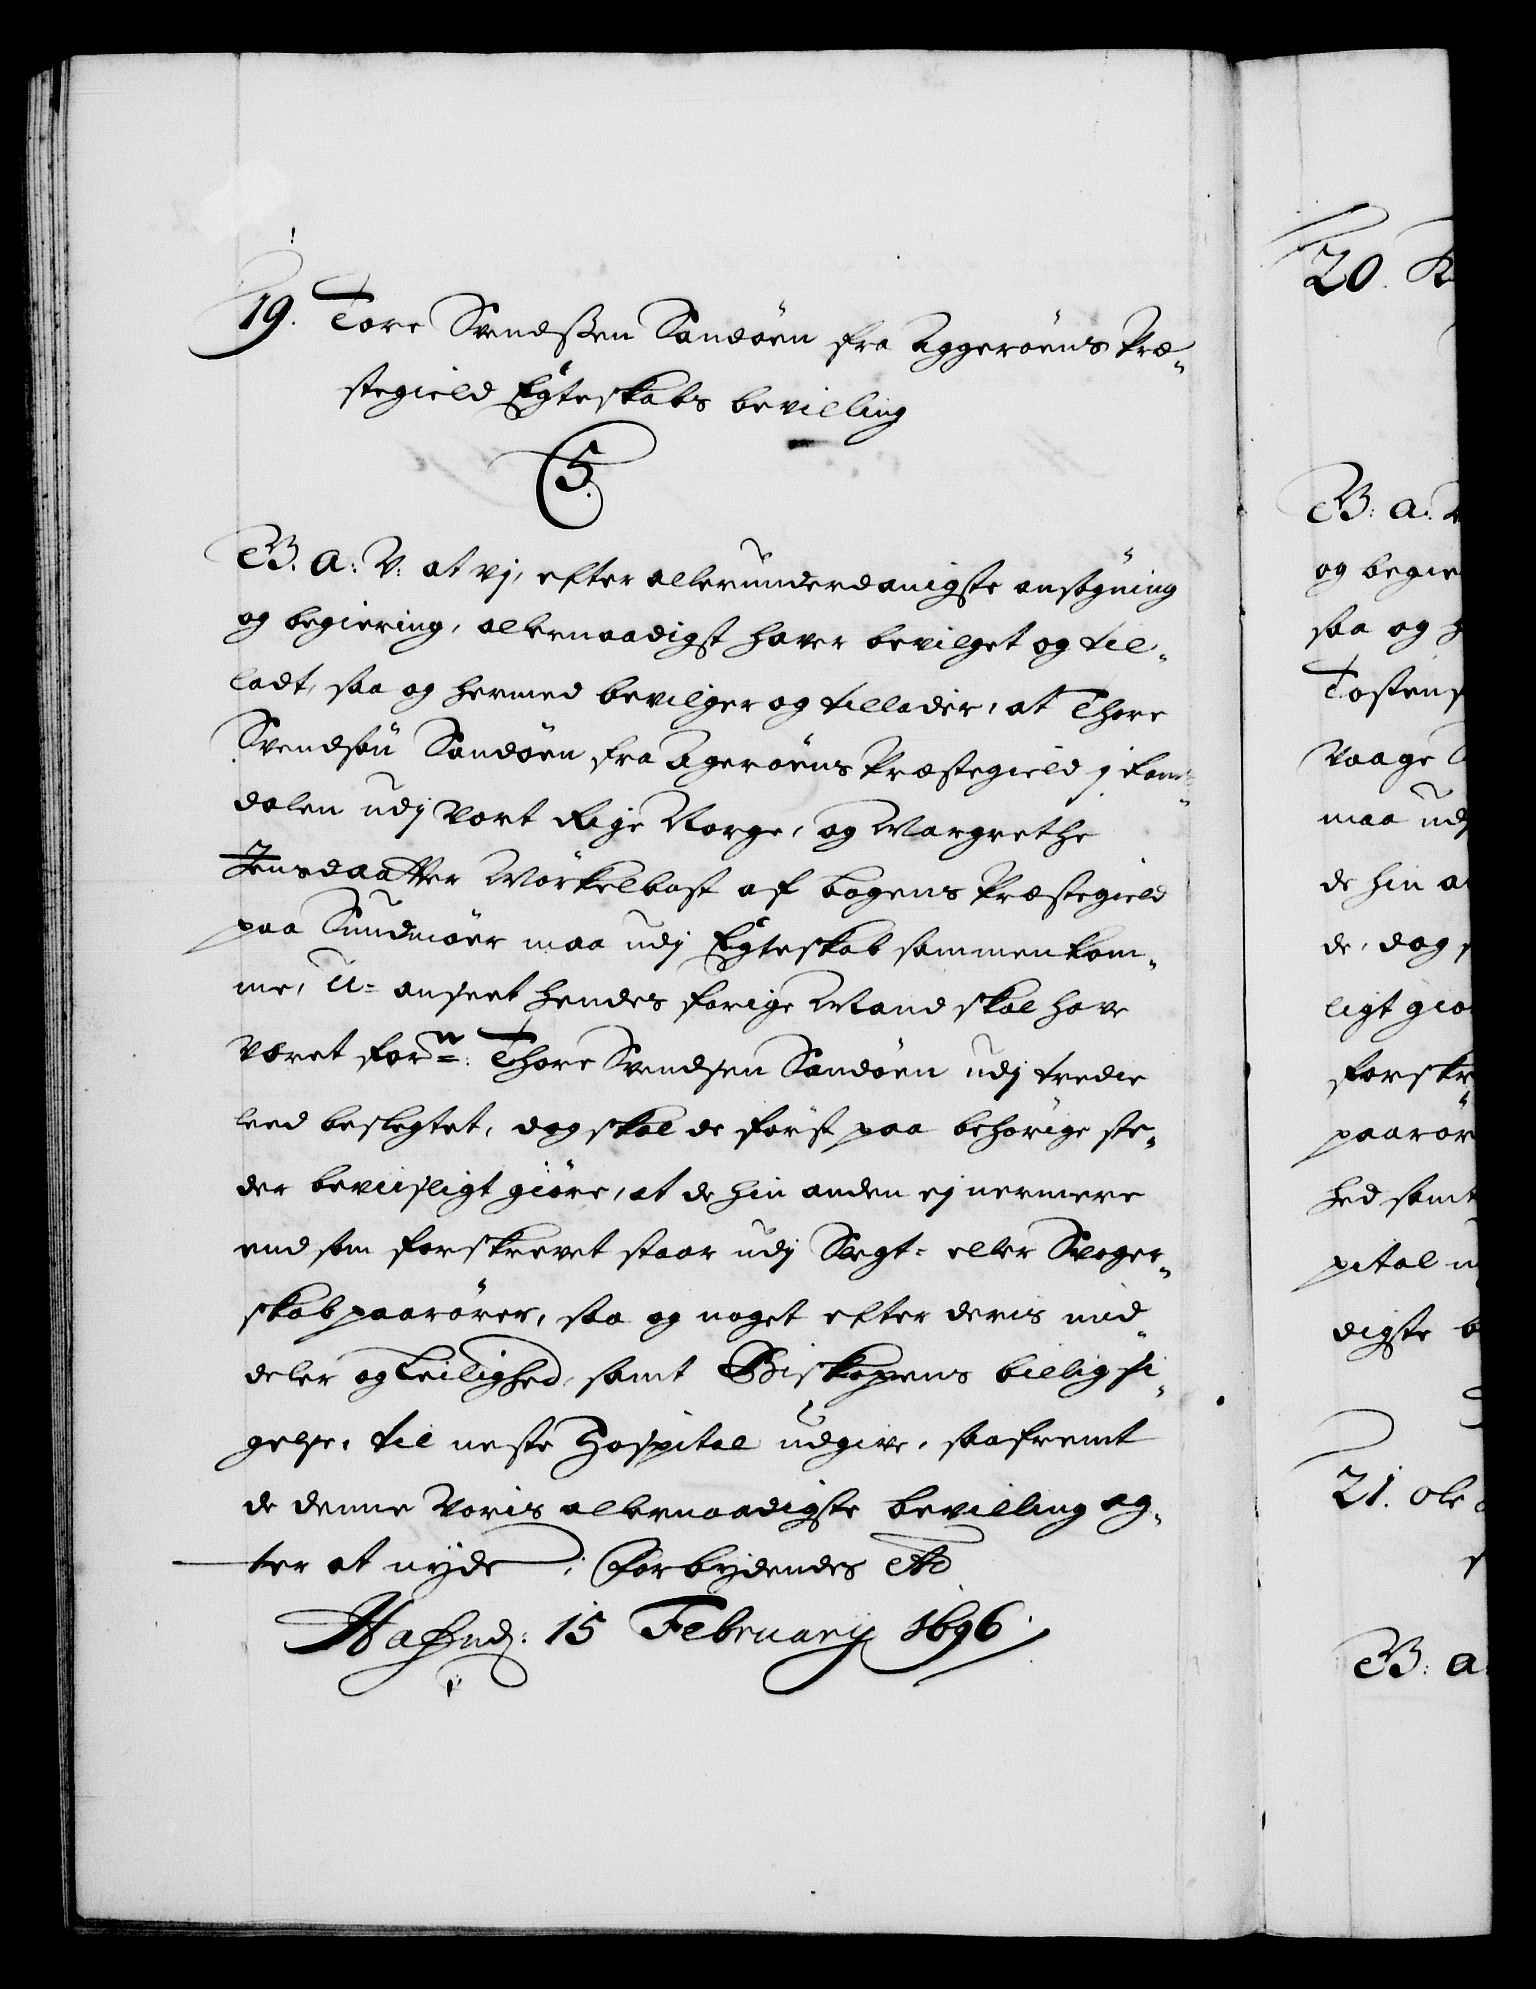 19. Tore Svendssen Sandöen fra Aggeröens Præ-
stegield Egteskabs bevilling
C5.
B. A: V: at vj, efter allerunderdanigste ansögning
og begiering, allernaadigst haver bevilget og til-
ladt, saa og hermed bevilger og tillader, at Thore
Svendsön Sandöen fra Ageröens Præstegield j
dalen udj vort Rige Norge, og Margrethe
Jensdaatter Mörkelbost af Bogens Præstegield
paa Sundmöer maa udj Egteskab sammenkom-
me, U-anseet hendes forige Mand skal have
været forne: Thore Svendsen Sandöen udj tredie
leed beslegtet, dog skal de först paa behörige ste-
der beviisligt giöre, at de hin anden ej nermere
end som forskrevet staar udj Slegt- eller Svoger-
skab paarörer, saa og noget efter deris mid-
deler og Leilighed, samt Biskopens billig si-
gelse, til neste Hospital udgive, saafremt
de denne voris allernaadigste bevilling ag-
ter at nyde; Forbydendes Ad
Hafnd: 15 February 1696.
20. K
B: A. V
og begie
saa og h
Tostens
Vaage
maa udj
de hin a
de, dog s
ligt giö
forskre
paarör
hed samt
pital u
digste b
21. Ole
B: A: